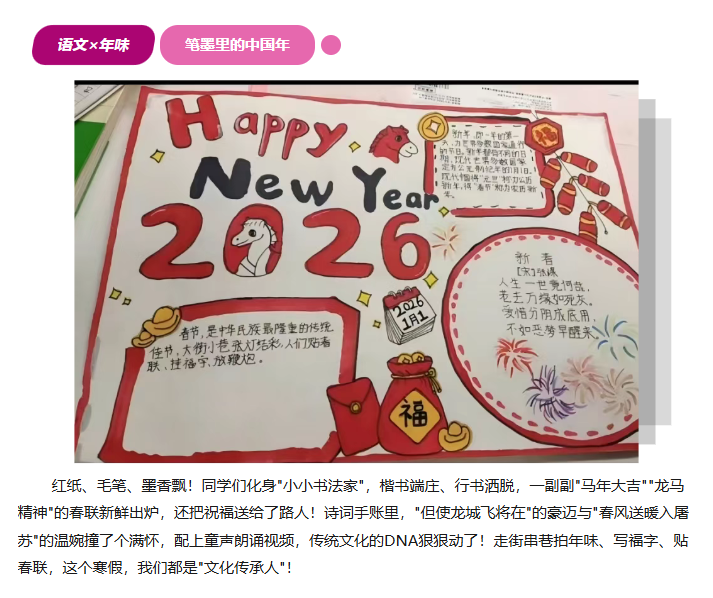 语文×年味 笔墨里的中国年
Happy
New Year
2026
新年,即一年的第一
天,为世界多数国家通行
的节日。新年都有不同的日
期,现代世界多数国家
定为公元制纪年的1月1日。
春节,是中华民族最隆重的传统
佳节,大街小巷张灯结彩,人们贴春
联,挂福字,放鞭炮。
2026
1月1
福
新春
人生一世
不如恶梦早醒来
红纸、毛笔、墨香飘!同学们化身"小小书法家",楷书端庄、行书洒脱,一副副"马年大吉""龙马
精神"的春联新鲜出炉,还把祝福送给了路人!诗词手账里,"但使龙城飞将在"的豪迈与"春风送暖入屠
苏"的温婉撞了个满怀,配上童声朗诵视频,传统文化的DNA狠狠动了!走街串巷拍年味、写福字、贴
春联,这个寒假,我们都是"文化传承人"!